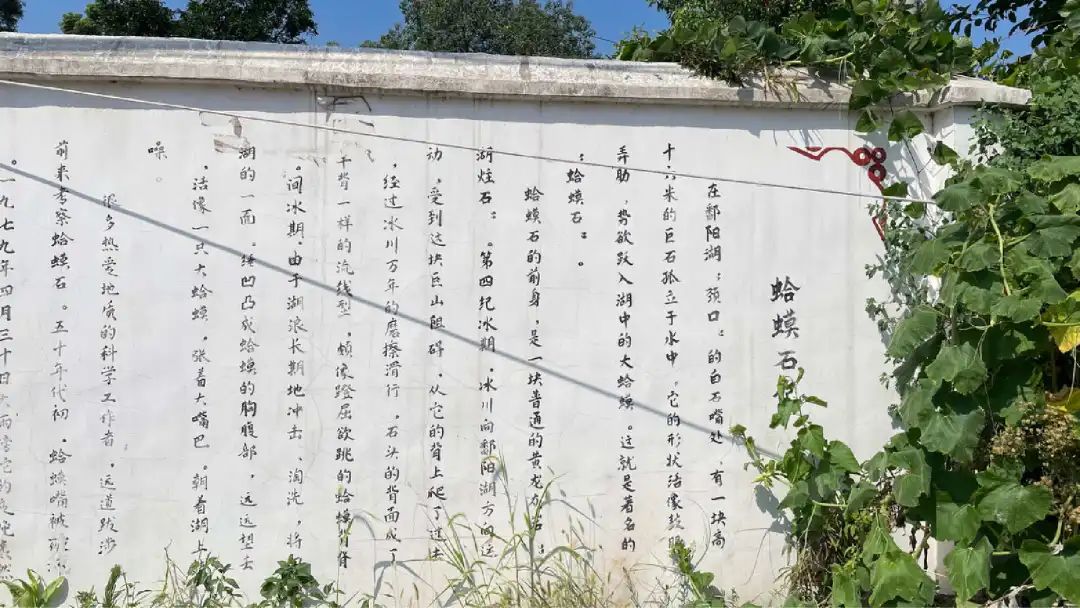 蛤蟆石
在鄱阳湖“颈口”的白石嘴处，有一块高
十六米的巨石孤立于水中。它的形状活像鼓眼
弄肋，势欲跃入湖中的大蛤蟆。这就是著名的
“蛤蟆石”。
蛤蟆石的前身，是一块普通的黄龙方石“
湖炷石”。第四纪冰期，冰川向鄱阳湖方向运
动，受到这块巨山阻碍，从它的背上爬了过去
，经过冰川万年的磨擦滑行，石头的背面成了
千背一样的流线型，颇像蹬屈欲跳的蛤蟆背脊
。间冰期，由于湖浪长期地冲击、淘洗，将
湖的一面，凹凸成蛤蟆的胸腹部，远远望去
，活像一只大蛤蟆，张着大嘴巴。朝着湖上
噪。
很多热爱地质的科学工作者，远道跋涉
前来考察蛤蟆石。五十年代初，蛤蟆嘴被
。一九七九年四月三十日